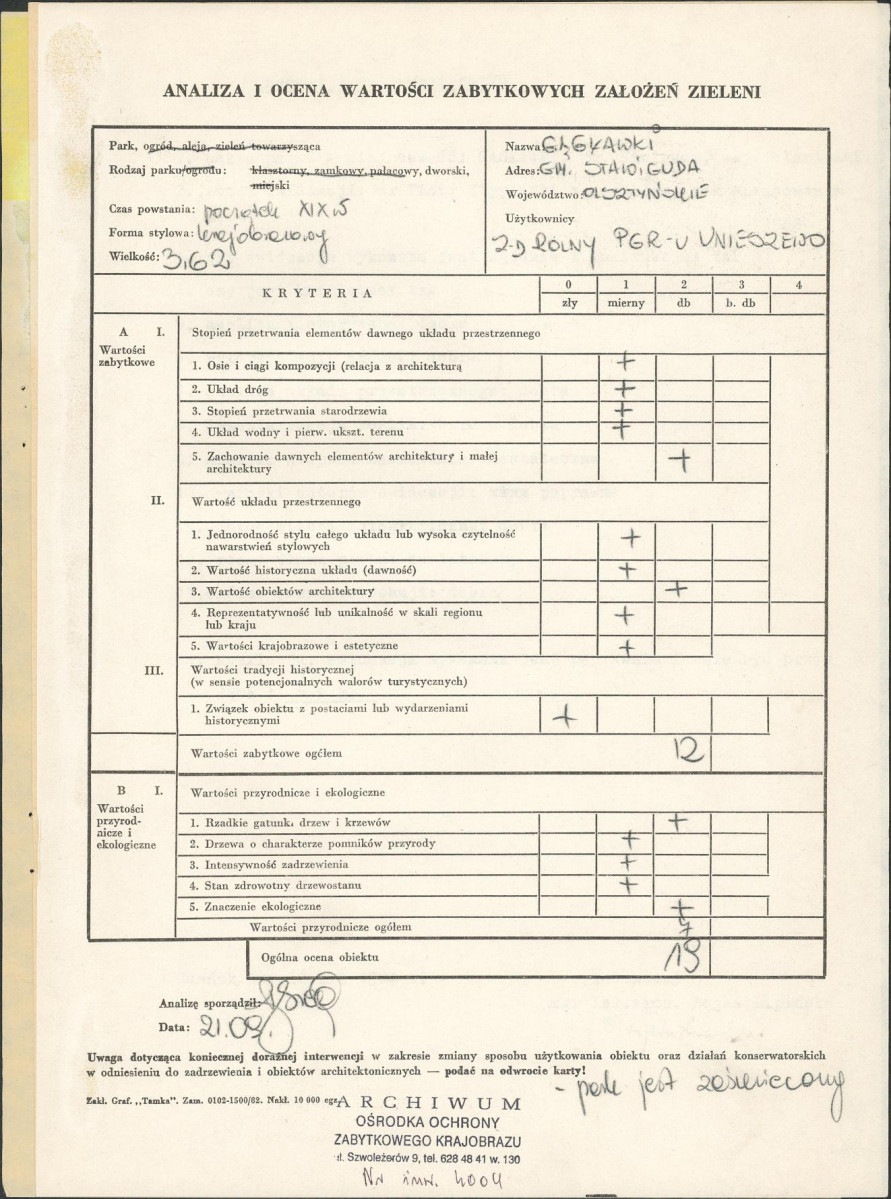 ANALIZA I OCENA WARTOŚCI ZABYTKOWYCH ZAŁOŻEŃ ZIELENI
Park, ogród, aleja, zieleń towarzysząca
Rodzaj parku/ogrodu: klasztorny, zamkowy, pałacowy, dworski,
miejski
Czas powstania: początek XIX w
Forma stylowa: krajobrazowy
Wielkość: 3,62
Nazwa: GĄGŁAWKI
Adres: GM. STAWIGUDA
Województwo: OLSZTYŃSKIE
Użytkownicy
Z-D ROLNY PGR-U UNIESZEWO
KRYTERIA
0 1 2 3 4
zły mierny db b. db
A I. Stopień przetrwania elementów dawnego układu przestrzennego
Wartości
zabytkowe
1. Osie i ciągi kompozycji (relacja z architekturą +
2. Układ dróg +
3. Stopień przetrwania starodrzewia +
4. Układ wodny i pierw. ukszt. terenu +
5. Zachowanie dawnych elementów architektury i małej
architektury +
II. Wartość układu przestrzennego
1. Jednorodność stylu całego układu lub wysoka czytelność
nawarstwień stylowych +
2. Wartość historyczna układu (dawność) +
3. Wartość obiektów architektury +
4. Reprezentatywność lub unikalność w skali regionu
lub kraju +
5. Wartości krajobrazowe i estetyczne +
III. Wartości tradycji historycznej
(w sensie potencjonalnych walorów turystycznych)
1. Związek obiektu z postaciami lub wydarzeniami
historycznymi +
Wartości zabytkowe ogółem 12
B I. Wartości przyrodnicze i ekologiczne
Wartości
przyrod-
nicze i
ekologiczne
1. Rzadkie gatunki drzew i krzewów +
2. Drzewa o charakterze pomników przyrody +
3. Intensywność zadrzewienia +
4. Stan zdrowotny drzewostanu +
5. Znaczenie ekologiczne +
Wartości przyrodnicze ogółem 7
Ogólna ocena obiektu 19
Analizę sporządził:
Data: 21.09.
Uwaga dotycząca koniecznej doraźnej interwencji w zakresie zmiany sposobu użytkowania obiektu oraz działań konserwatorskich
w odniesieniu do zadrzewienia i obiektów architektonicznych — podać na odwrocie karty!
- park jest zaśmiecony
Zakł. Graf. „Tamka". Zam. 0102-1500/82. Nakł. 10 000 egz.
ARCHIWUM
OŚRODKA OCHRONY
ZABYTKOWEGO KRAJOBRAZU
ul. Szwoleżerów 9, tel. 628 48 41 w. 130
Nr inw. 4004